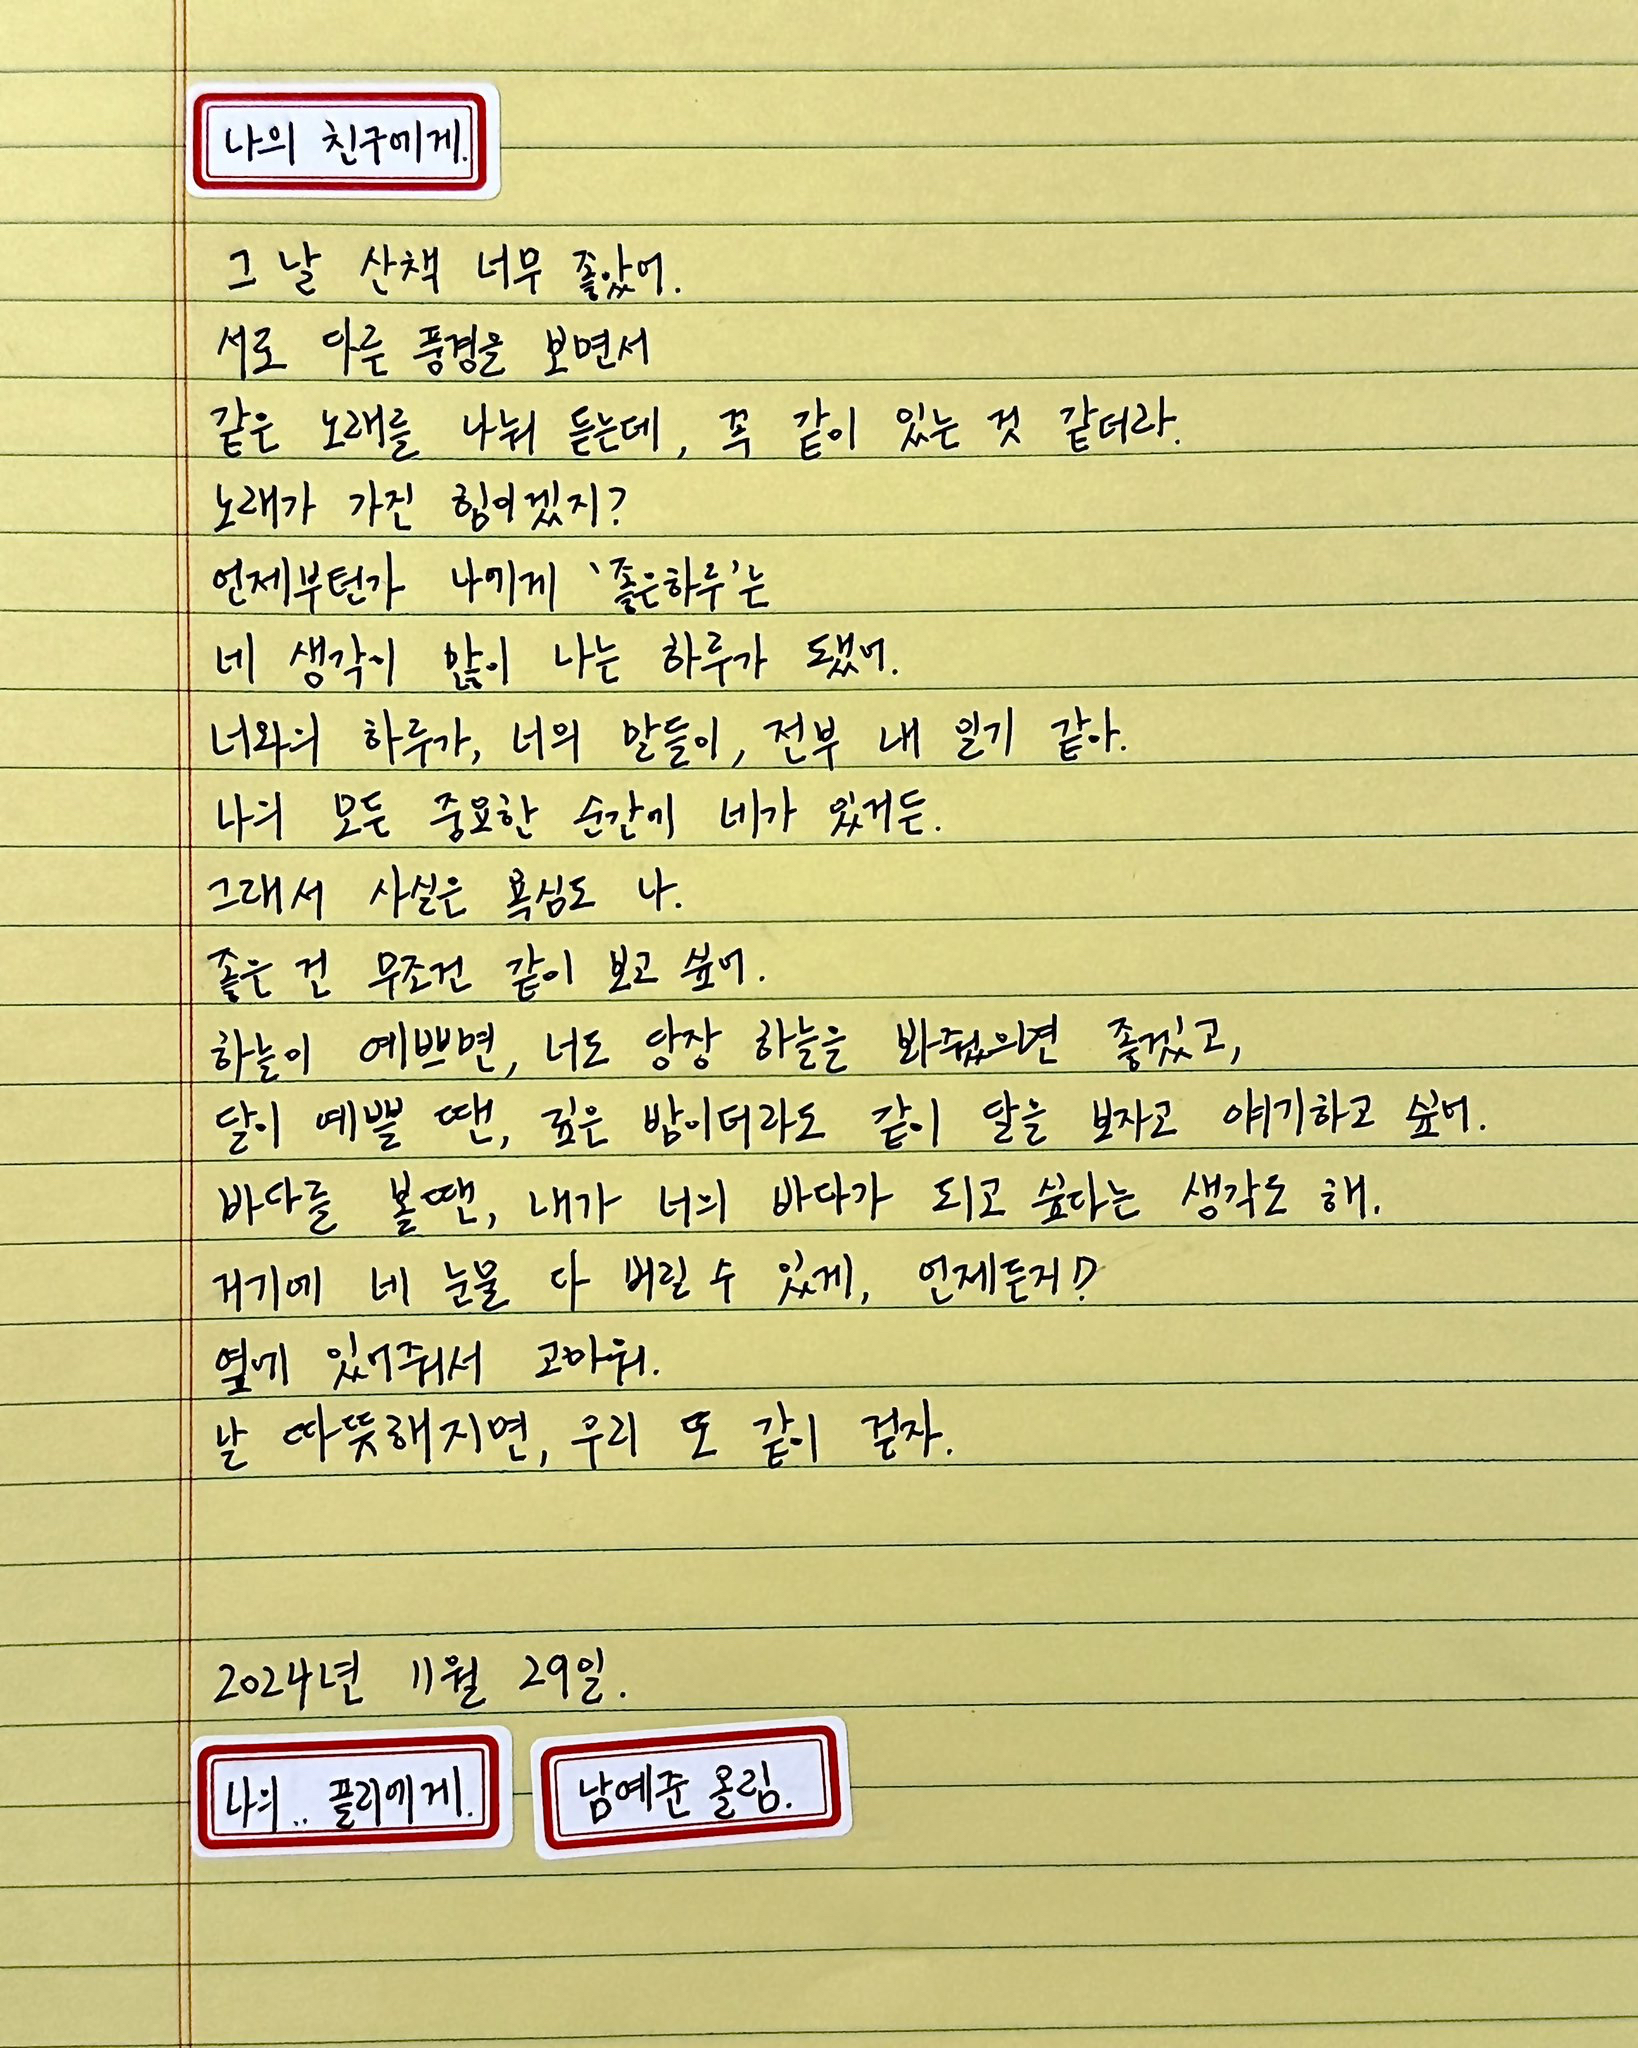 나의 친구에게.
그 날 산책 너무 좋았어.
서로 다른 풍경을 보면서
같은 노래를 나눠 듣는데, 꼭 같이 있는 것 같더라.
노래가 가진 힘이겠지?
언제부턴가 나에게 '좋은하루'는
네 생각이 많이 나는 하루가 됐어.
너와의 하루가, 너의 말들이, 전부 내 일기 같아.
나의 모든 중요한 순간에 네가 있거든.
그래서 사실은 욕심도 나.
좋은 건 무조건 같이 보고 싶어.
하늘이 예쁘면, 너도 당장 하늘을 봐줬으면 좋겠고,
달이 예쁠 땐, 깊은 밤이더라도 같이 달을 보자고 얘기하고 싶어.
바다를 볼땐, 내가 너의 바다가 되고 싶다는 생각도 해.
거기에 네 눈물 다 버릴 수 있게, 언제든지!?
옆에 있어줘서 고마워.
날 따뜻해지면, 우리 또 같이 걷자.
2024년 11월 29일.
나의.. 플리에게.
남예준 올림.